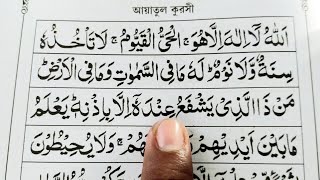 আয়াতুল কুরসী
اَللّٰهُ لَاۤ اِلٰهَ اِلَّا هُوَۚ اَلْحَیُّ الْقَیُّوْمُ ۚ لَا تَاْخُذُهٗ
سِنَةٌ وَّلَا نَوْمٌ ؕ لَهٗ مَا فِی السَّمٰوٰتِ وَمَا فِی الْاَرْضِ ؕ
مَنْ ذَا الَّذِیْ یَشْفَعُ عِنْدَهٗۤ اِلَّا بِاِذْنِهٖ ؕ یَعْلَمُ
مَا بَیْنَ اَیْدِیْهِمْ هُمْ ۚ وَلَا یُحِیْطُوْنَ